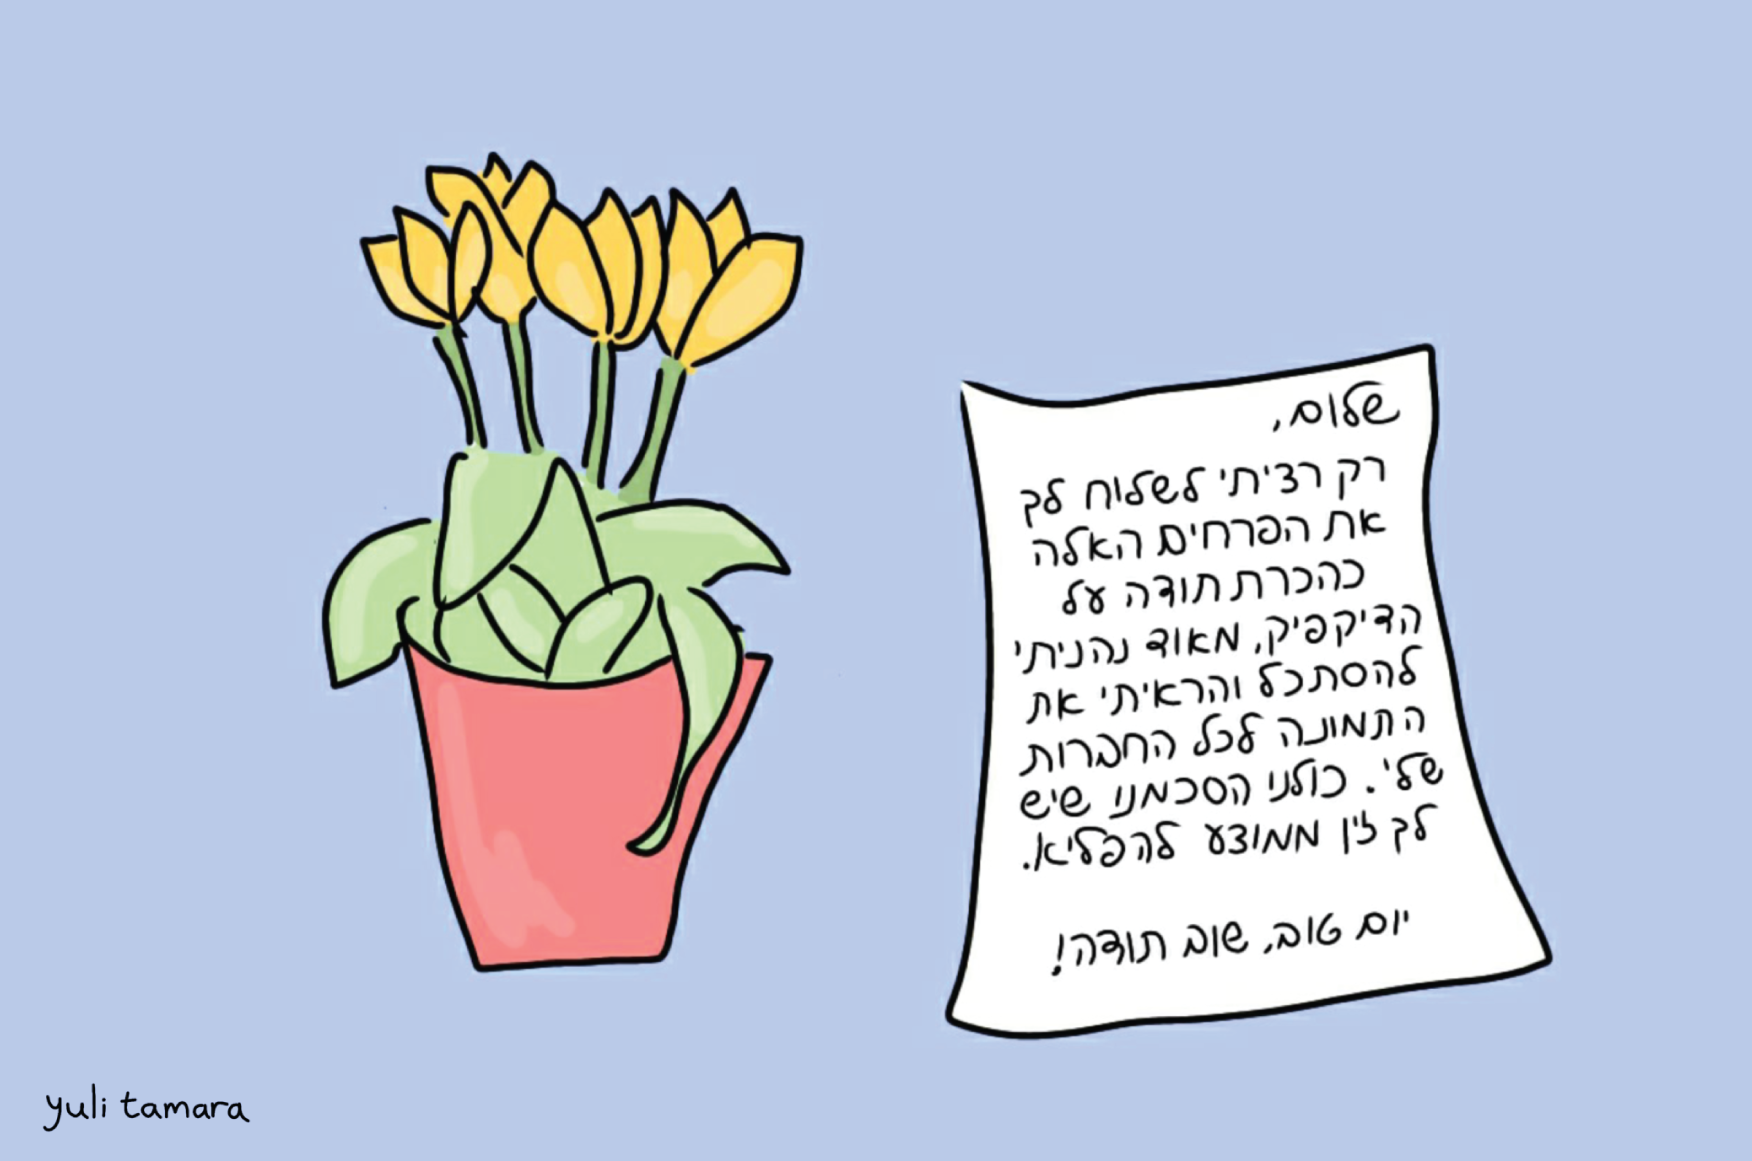 שלום,
רק רציתי לשלוח לך
את הפרחים האלה
כהכרת תודה על
הדיקפיק, מאוד נהניתי
להסתכל והראיתי את
התמונה לכל החברות
שלי. כולנו הסכמנו שיש
לך זין ממוצע להפליא.
יום טוב, שוב תודה!
yuli tamara